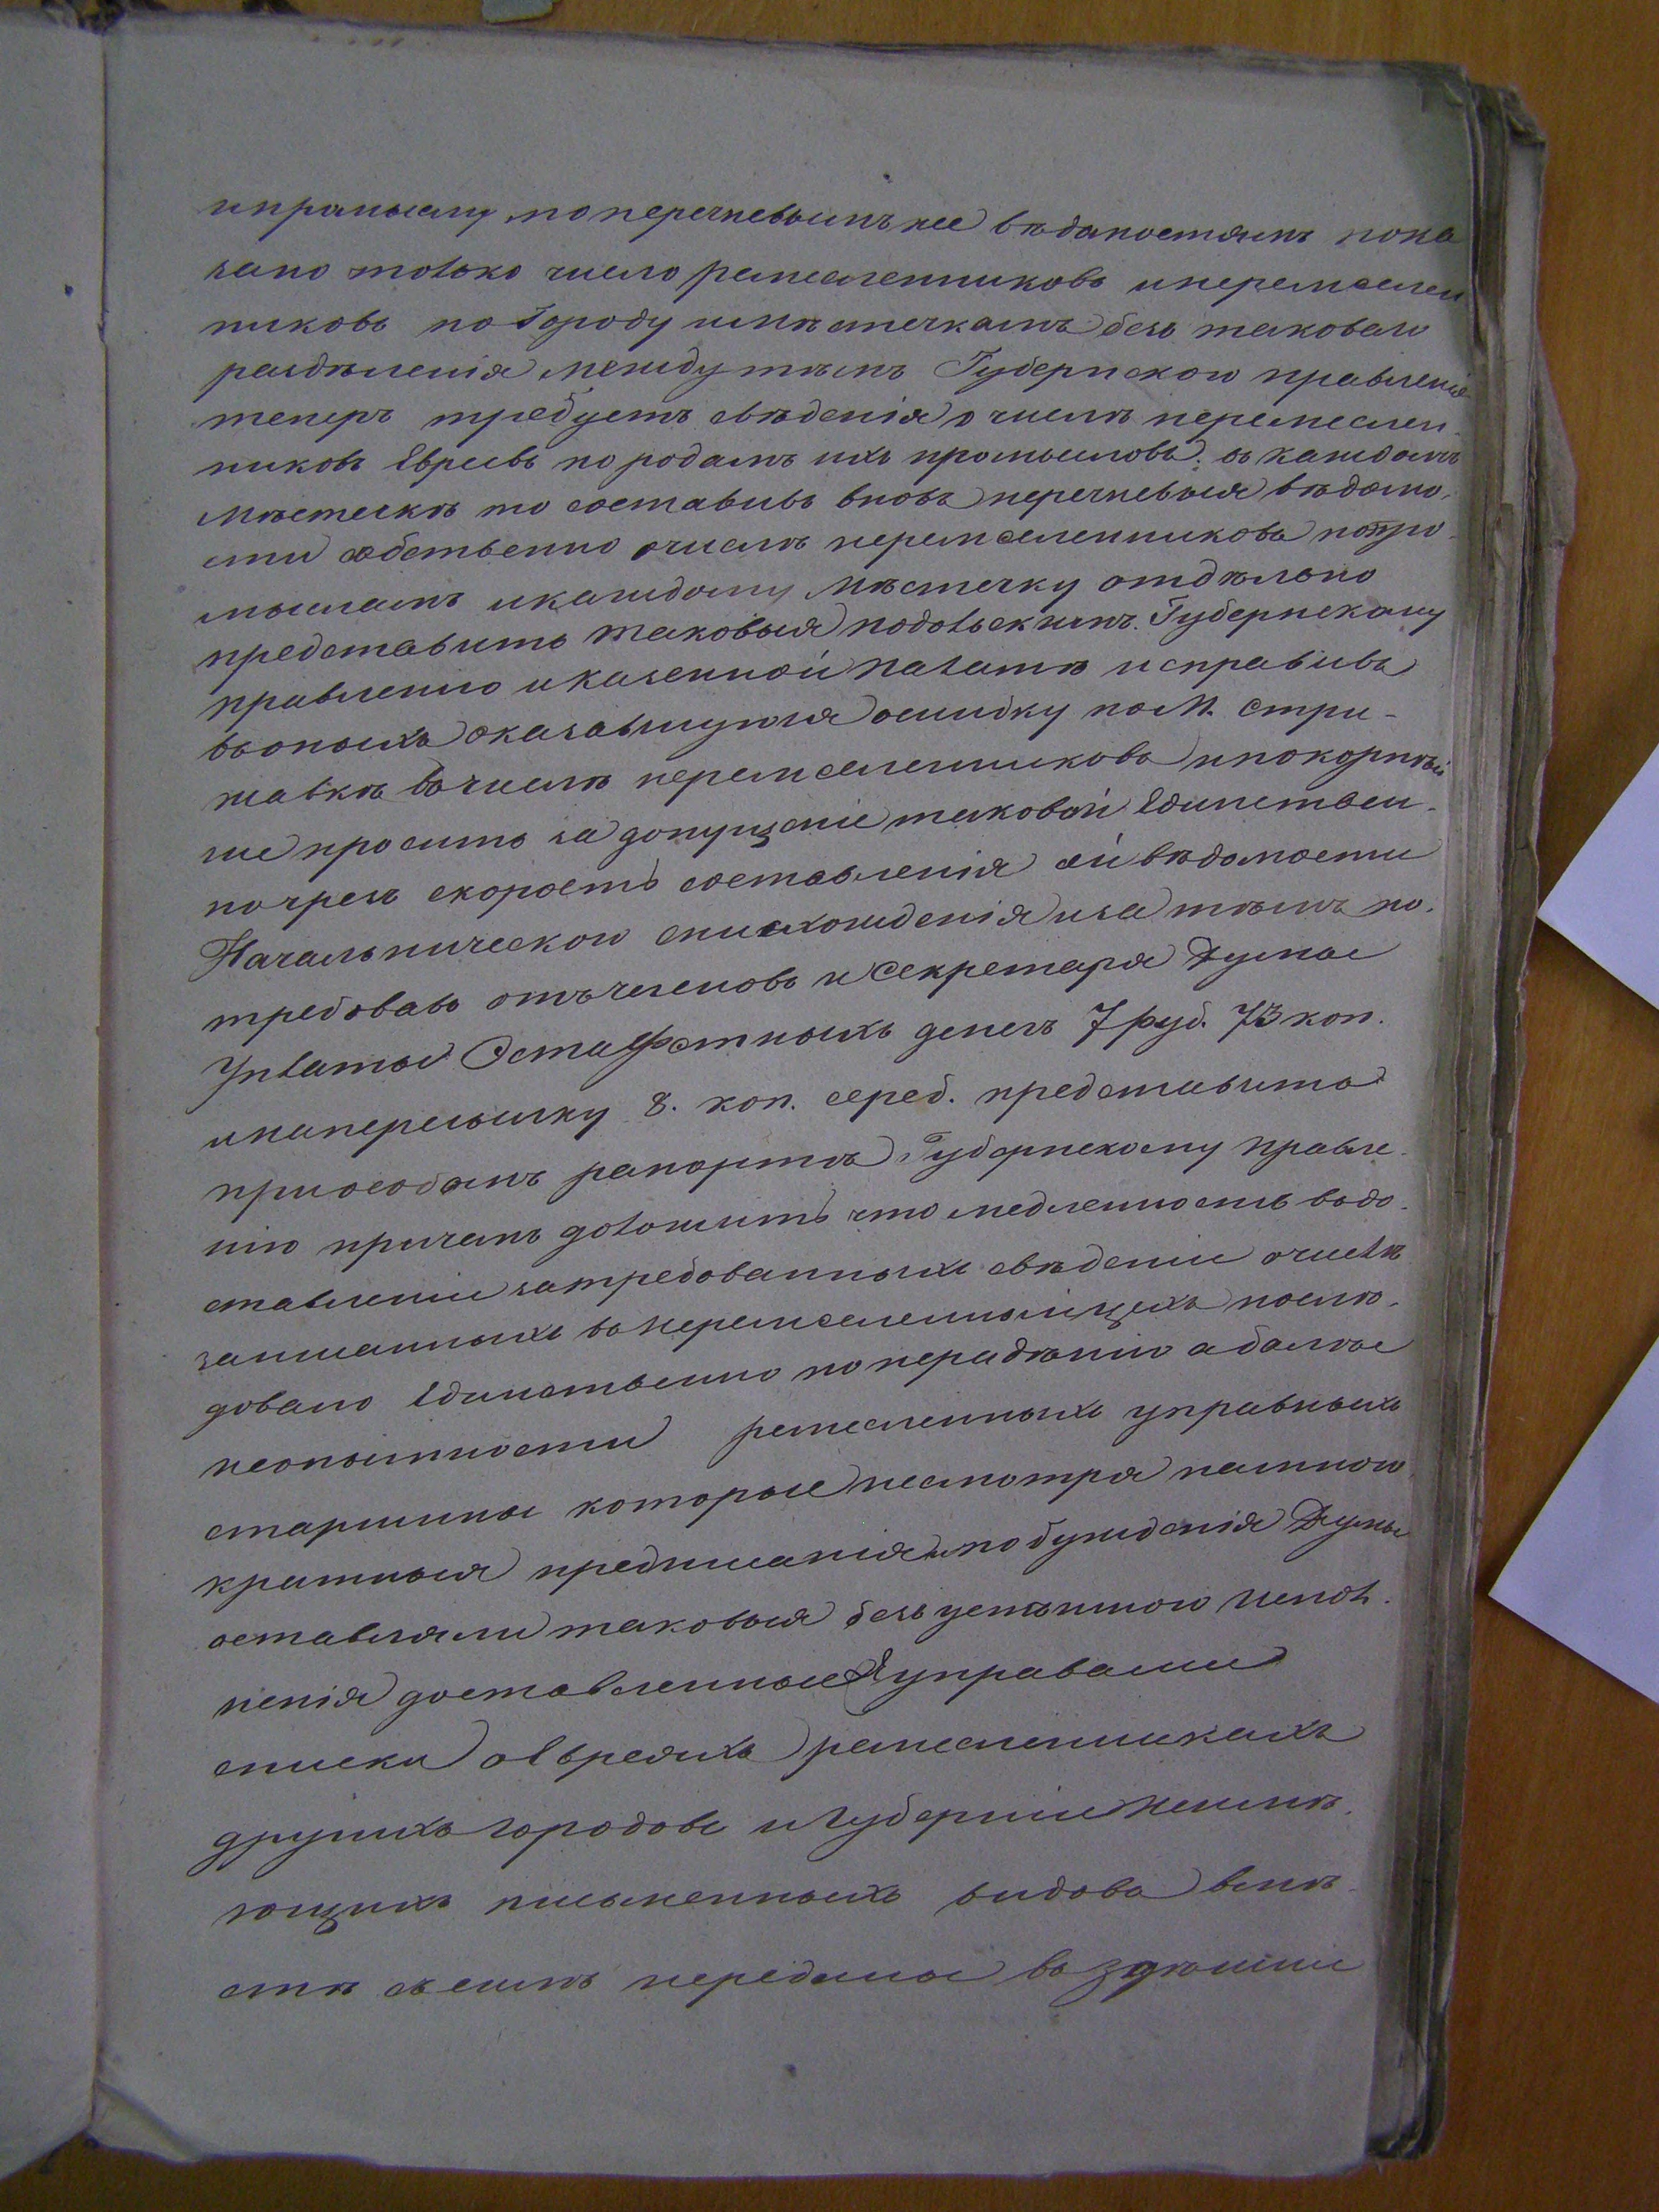 ипромыслу, поперечневымъ же вѣдомостямъ пока
зано только число ремесленниковъ инеремеслен
никовъ по Городу имѣстечкамъ безъ таковаго
раздѣленія, между тѣмъ Губернское правленіе
теперъ требуетъ свѣденія о числѣ неремеслен-
никовъ Евреевъ по родамъ ихъ промысловъ. въ каждомъ
мѣстечкѣ то составивъ вновъ перечневыя вѣдомо-
сти собственно очислѣ неремесленниковъ попро-
мысламъ икаждому мѣстечку отдѣльно
представить таковыя подольскимъ. Губернскому
правленію иказенной Палатѣ исправивъ
вьоныхъ оказавшуюся ошибку по М. Стри-
жавкѣ вьчислѣ неремесленниковъ ипокорнѣй
ше просить за допущеніе таковой Единствен-
но чрезъ скорость составленія сей вѣдомости
Начальническою снисхожденія иза тѣмъ по-
требовавъ отъчленовъ и Секретаря Думы
Уплаты Эстафетныхъ денегъ 7 руб. 73 коп.
инапересылку 8. коп. сереб. представить
приособомъ рапортѣ Губернскому правле-
нію причемъ доложить что медленность въдо-
ставленіи затребованныхъ свѣденіи очислѣ
записанныхъ въ неремесленныйцехъ послѣ-
довало Единственно понерадѣнію аболѣе
неопытности ремесленныхъ управныхъ
старшины которые несмотря намного
кратныя предписанія ипобужденія Думы
оставляли таковыя безъ успѣшною Испол-
ненія доставленные управами
списки оЕвреяхъ ремесленникахъ
другихъ городовъ иГуберніи Неимѣ-
ющихъ письменныхъ видовъ вмѣ-
стѣ съ симъ переданы въ здѣшній